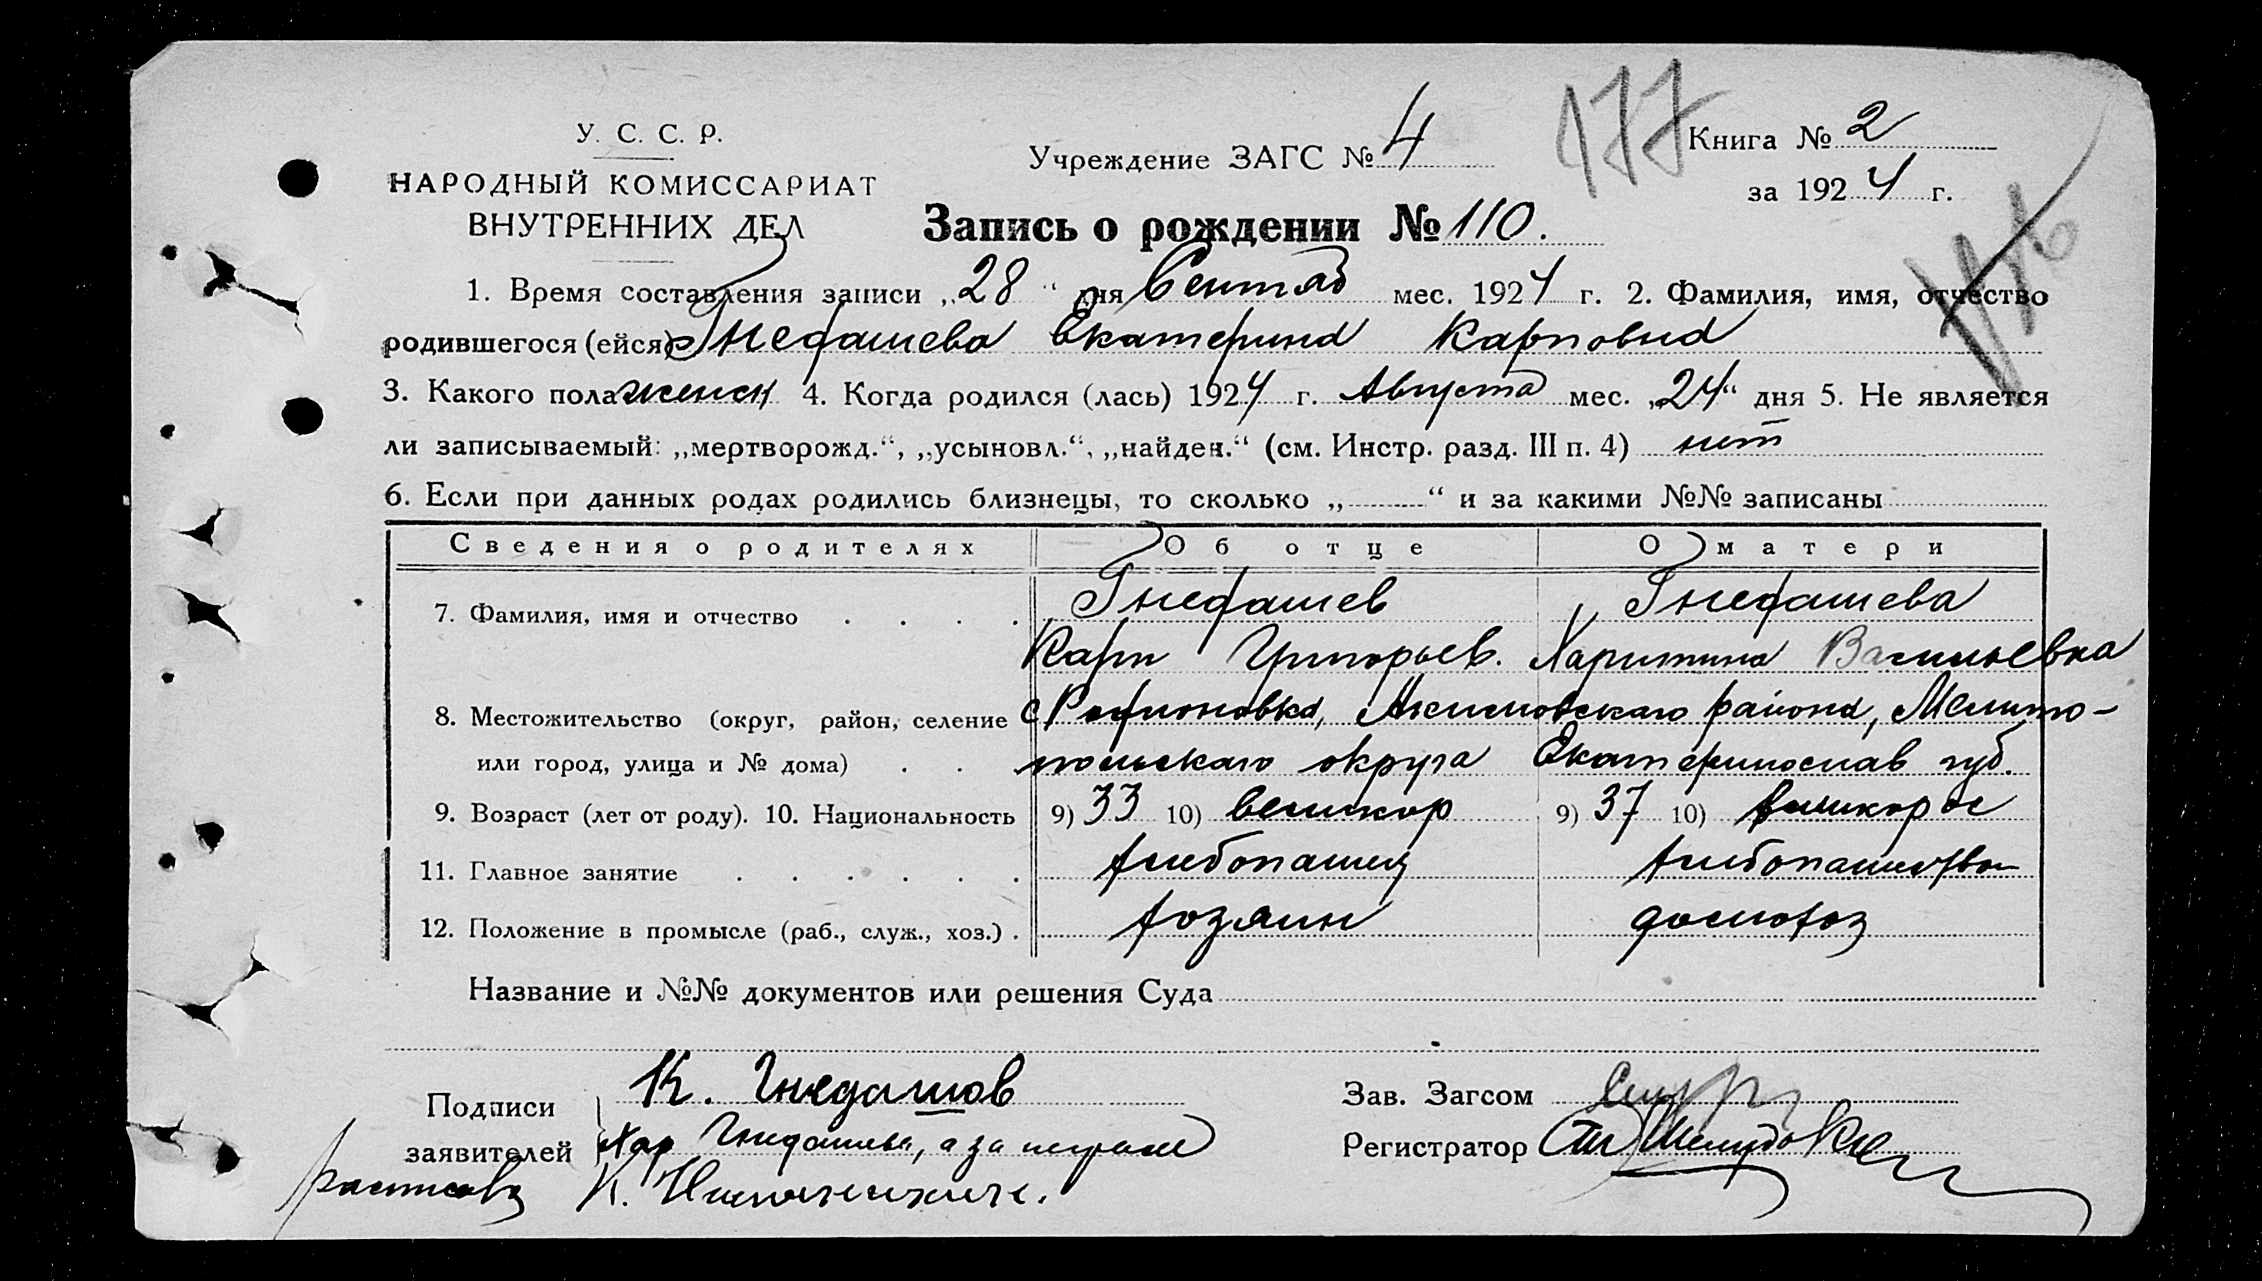 У. С. С. Р.
НАРОДНЫЙ КОМИССАРИАТ
ВНУТРЕННИХ ДЕЛ
Учреждение ЗАГС № 4
177
Книга № 2
за 1924 г.
Запись о рождении № 110.
1. Время составления записи „28“ дня Сентяб мес. 1924 г. 2. Фамилия, имя, отчество
родившегося (ейся) Гнедашева Екатерина Карповна
3. Какого пола женск 4. Когда родился (лась) 1924 г. Августа мес. „24“ дня 5. Не является
ли записываемый: „мертворожд.“, „усыновл.“, „найден.“ (см. Инстр. разд. III п. 4) нет
6. Если при данных родах родились близнецы, то сколько „ “ и за какими №№ записаны
Сведения о родителях Об отце О матери
7. Фамилия, имя и отчество Гнедашев Гнедашева
Карп Григорьев. Харитина Васильевна
8. Местожительство (округ, район, селение с Родионовка, Акимовскаго района, Мелито-
или город, улица и № дома) польскаго округа Екатеринослав губ.
9. Возраст (лет от роду). 10. Национальность 9) 33 10) великор 9) 37 10) великорос
11. Главное занятие хлебопашец хлебопашество
12. Положение в промысле (раб., служ., хоз.) хозяин домохоз
Название и №№ документов или решения Суда
Подписи К. Гнедашов Зав. Загсом
заявителей Хар Гнедашева, а за неграм Регистратор
расписавс К.